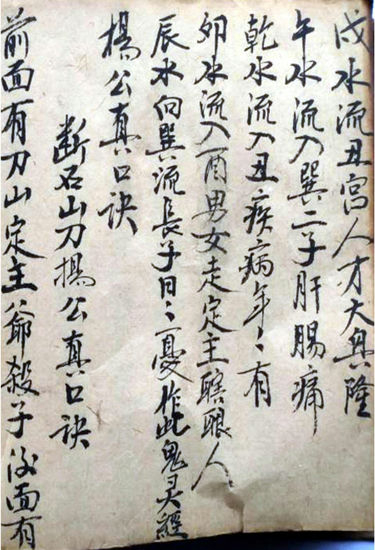 戌水流丑宫人才大兴隆
午水流入巽二子肝肠痛
乾水流入丑疾病年〻有
卯水流入酉男女走定主瞎眼人
辰水向巽流長子日〻憂作此鬼灵經
楊公真口訣
断石山刀楊公真口訣
前面有刀山定主爺殺子後面有